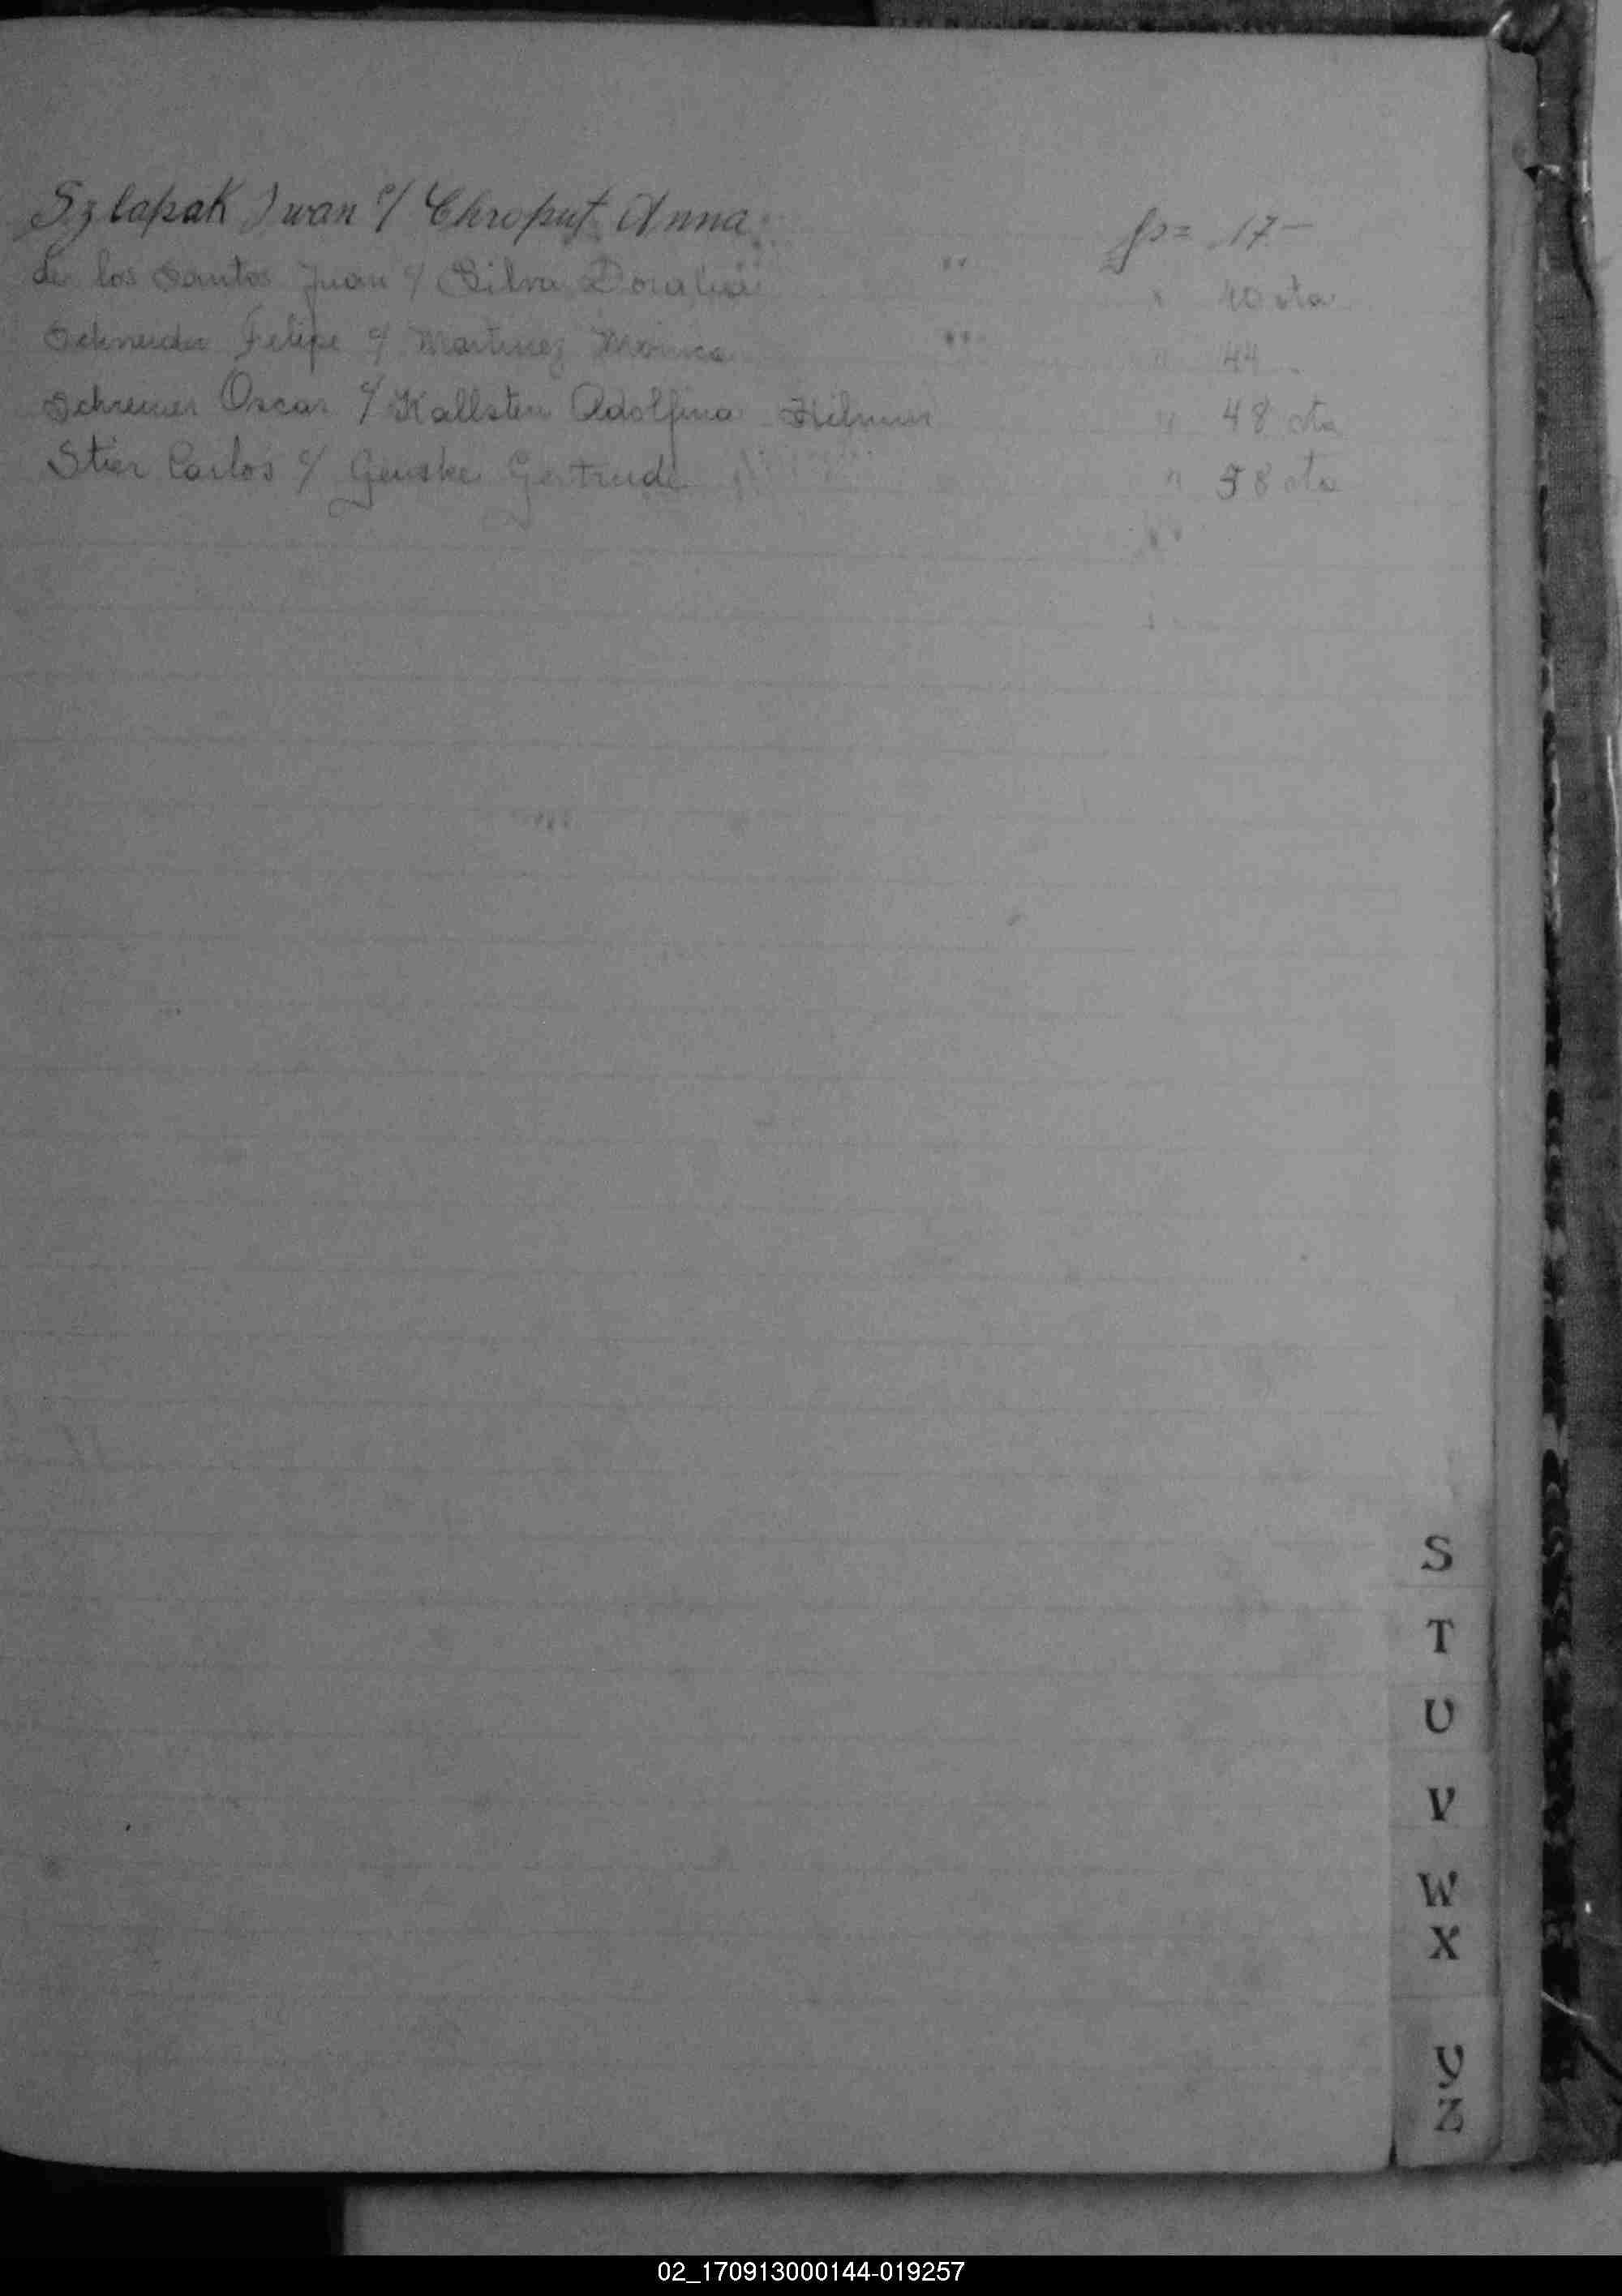 Szlapak Iwan c/ Chroput Anna fs= 17-
de los Santos Juan c/ Silva Doralicia " " 40 vta
Schneider Felipe c/ Martinez Monica " " 44
Schreiner Oscar c/ Kallsten Adolfina " 48 vta
Stier Carlos c/ Genske Gertrude " 38 vta
S
T
U
V
W
X
Y
Z
02_170913000144-019257